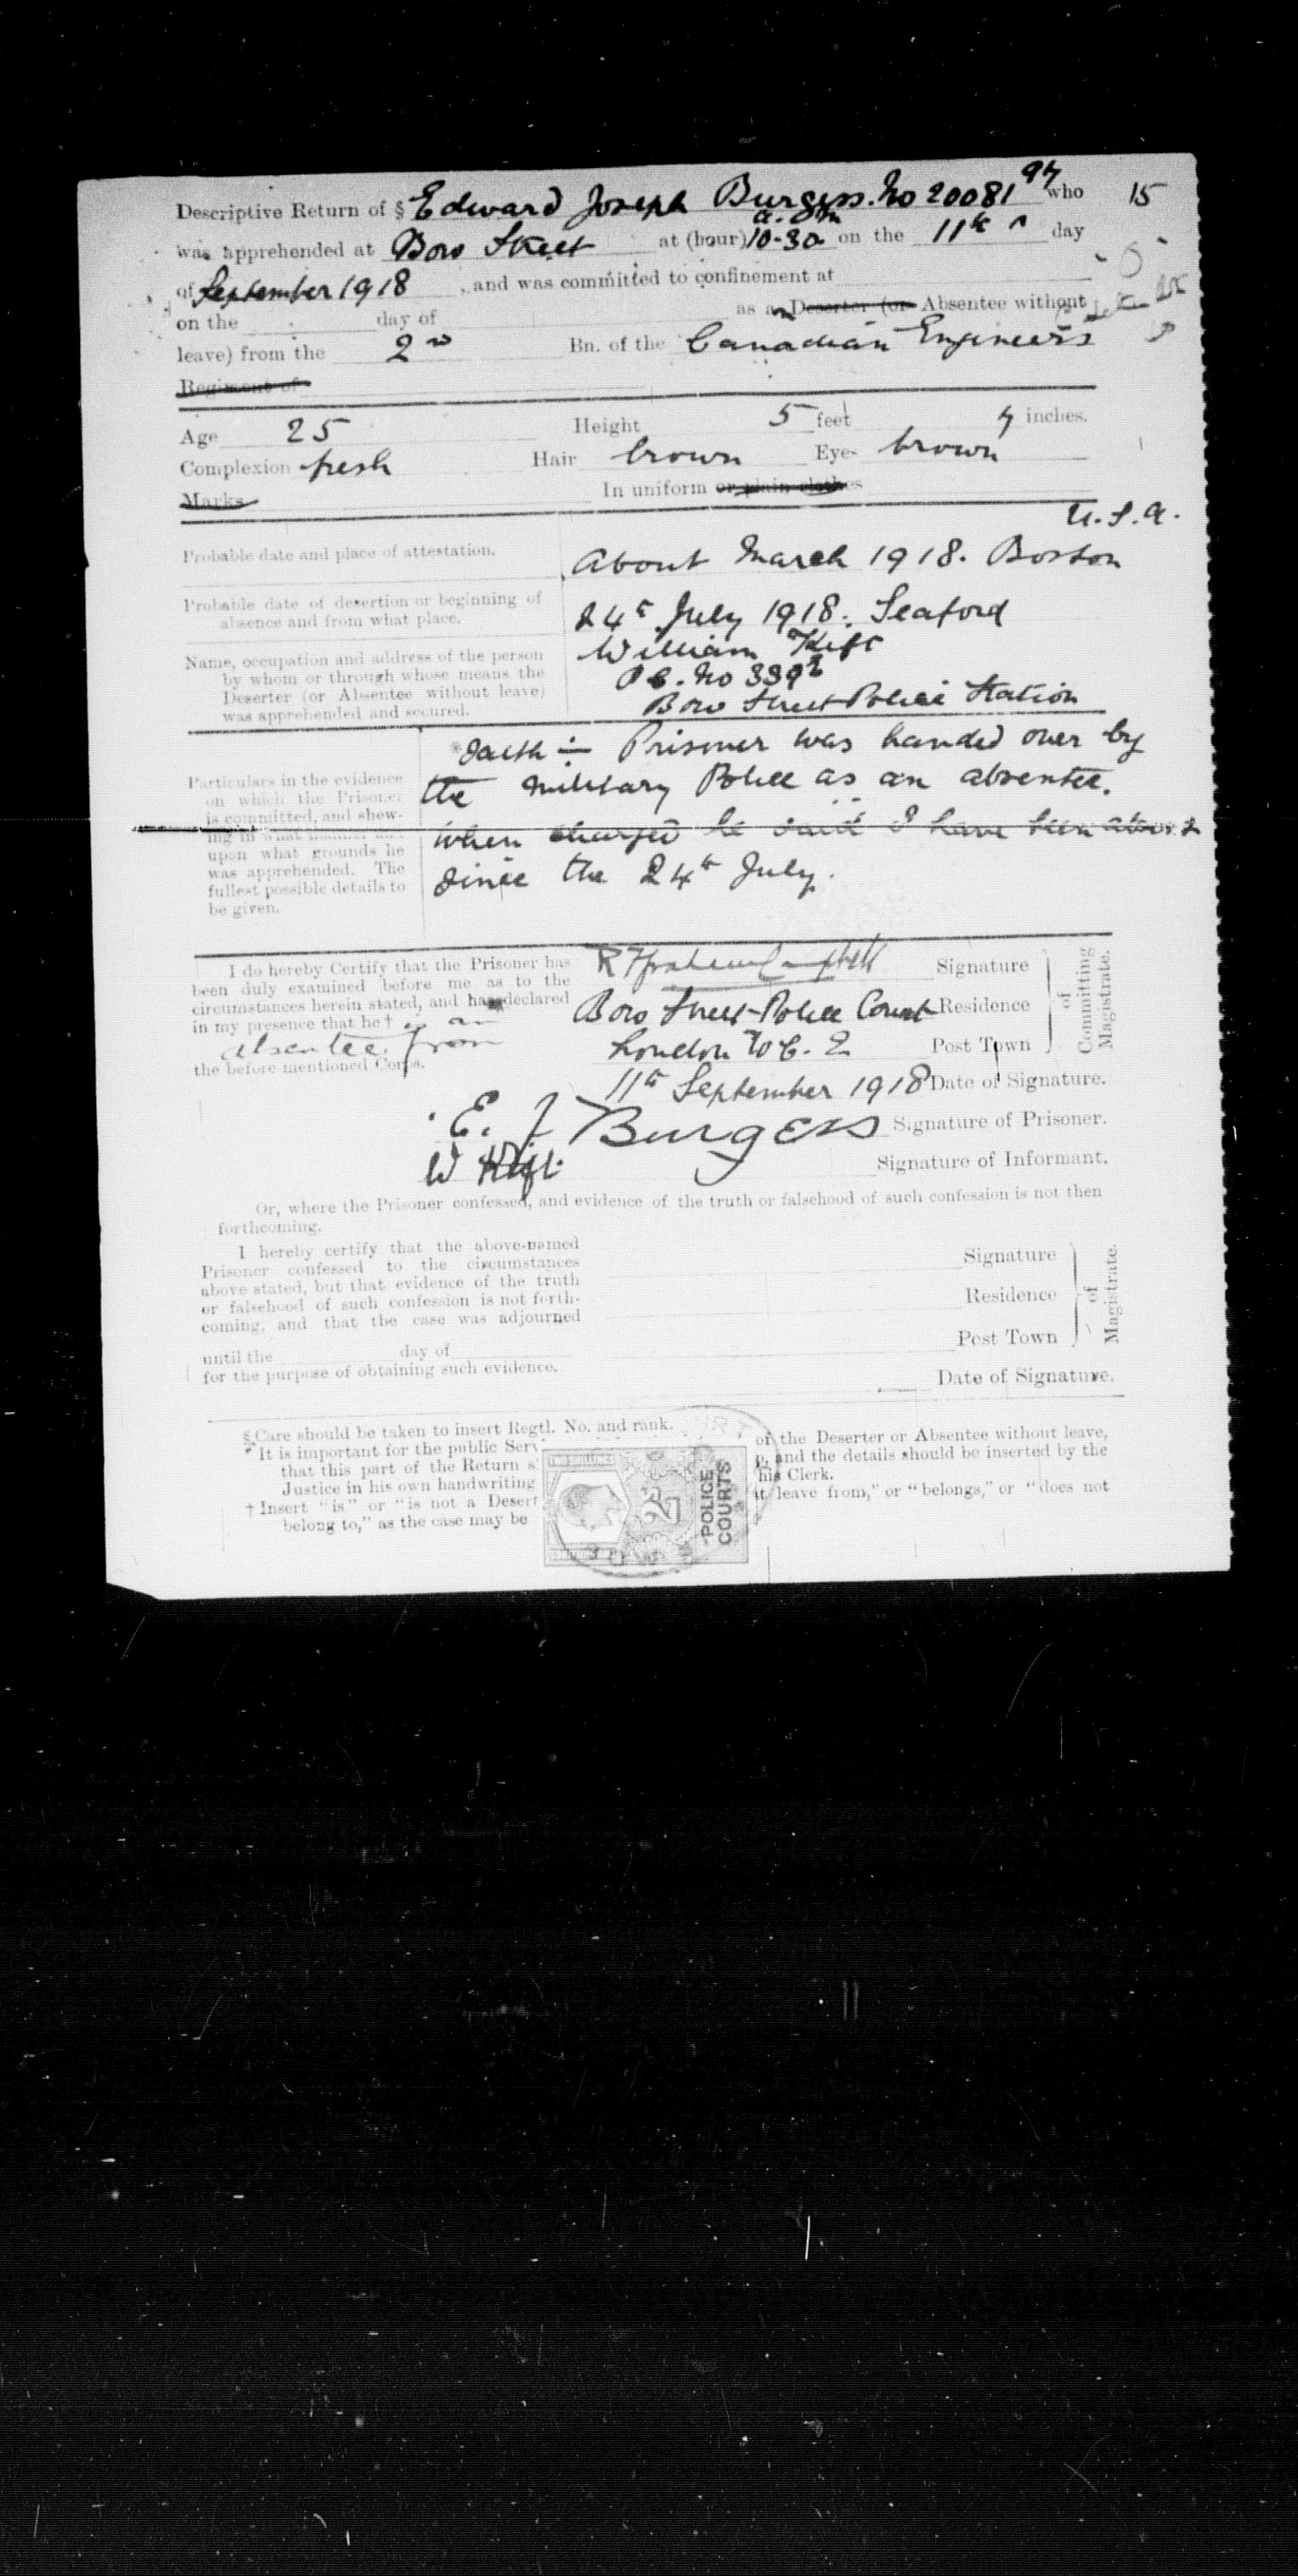 Descriptive Return of § Edward Joseph Burgess. No 2008197 who 15
was apprehended at Bow Street at (hour) 10-30 a.m on the 11th day
of September 1918, and was committed to confinement at
on the day of as an Deserter (or Absentee without
leave) from the 2nd Bn. of the Canadian Engineers
Regiment of
Age 25 Height 5 feet 7 inches.
Complexion fresh Hair brown Eyes brown
Marks In uniform or plain clothes
U.S.A.
Probable date and place of attestation. About March 1918. Boston
Probable date of desertion or beginning of
absence and from what place. 24th July 1918. Seaford
Name, occupation and address of the person
by whom or through whose means the
Deserter (or Absentee without leave)
was apprehended and secured.
William Kift
P.C. No 339
Bow Street Police Station
Particulars in the evidence
on which the Prisoner
is committed, and shew-
ing in what
upon what grounds he
was apprehended. The
fullest possible details to
be given.
*Saith :- Prisoner was handed over by
the Military Police as an absentee.
when charged he said I have been absent
since the 24th July.
I do hereby Certify that the Prisoner has
been duly examined before me as to the
circumstances herein stated, and has declared
in my presence that he† is an
absentee from
the before-mentioned Corps.
R Graham Campbell Signature
Bow Street Police Court Residence
London W.C. 2 Post Town
of Committing Magistrate.
11th September 1918 Date of Signature.
E. J Burgess Signature of Prisoner.
W Kift Signature of Informant.
Or, where the Prisoner confessed, and evidence of the truth or falsehood of such confession is not then
forthcoming.
I hereby certify that the above-named
Prisoner confessed to the circumstances
above stated, but that evidence of the truth
or falsehood of such confession is not forth-
coming, and that the case was adjourned
until the day of
for the purpose of obtaining such evidence.
Signature
Residence
Post Town
of Magistrate.
Date of Signature.
§ Care should be taken to insert Regtl. No. and rank.
* It is important for the public Serv of the Deserter or Absentee without leave,
that this part of the Return s p, and the details should be inserted by the
Justice in his own handwriting his Clerk.
† Insert "is" or "is not a Desert it leave from," or "belongs," or "does not
belong to," as the case may be
TWO SHILLINGS
2s
POLICE
COURTS